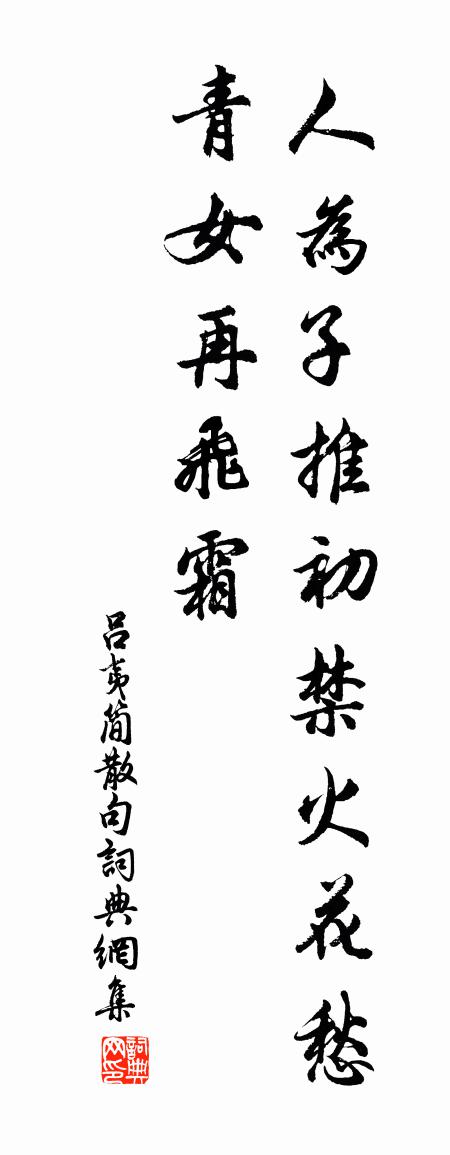 人為子推初禁火花愁
青女再飛霜
呂夷簡散句詞典網集
詞典网印